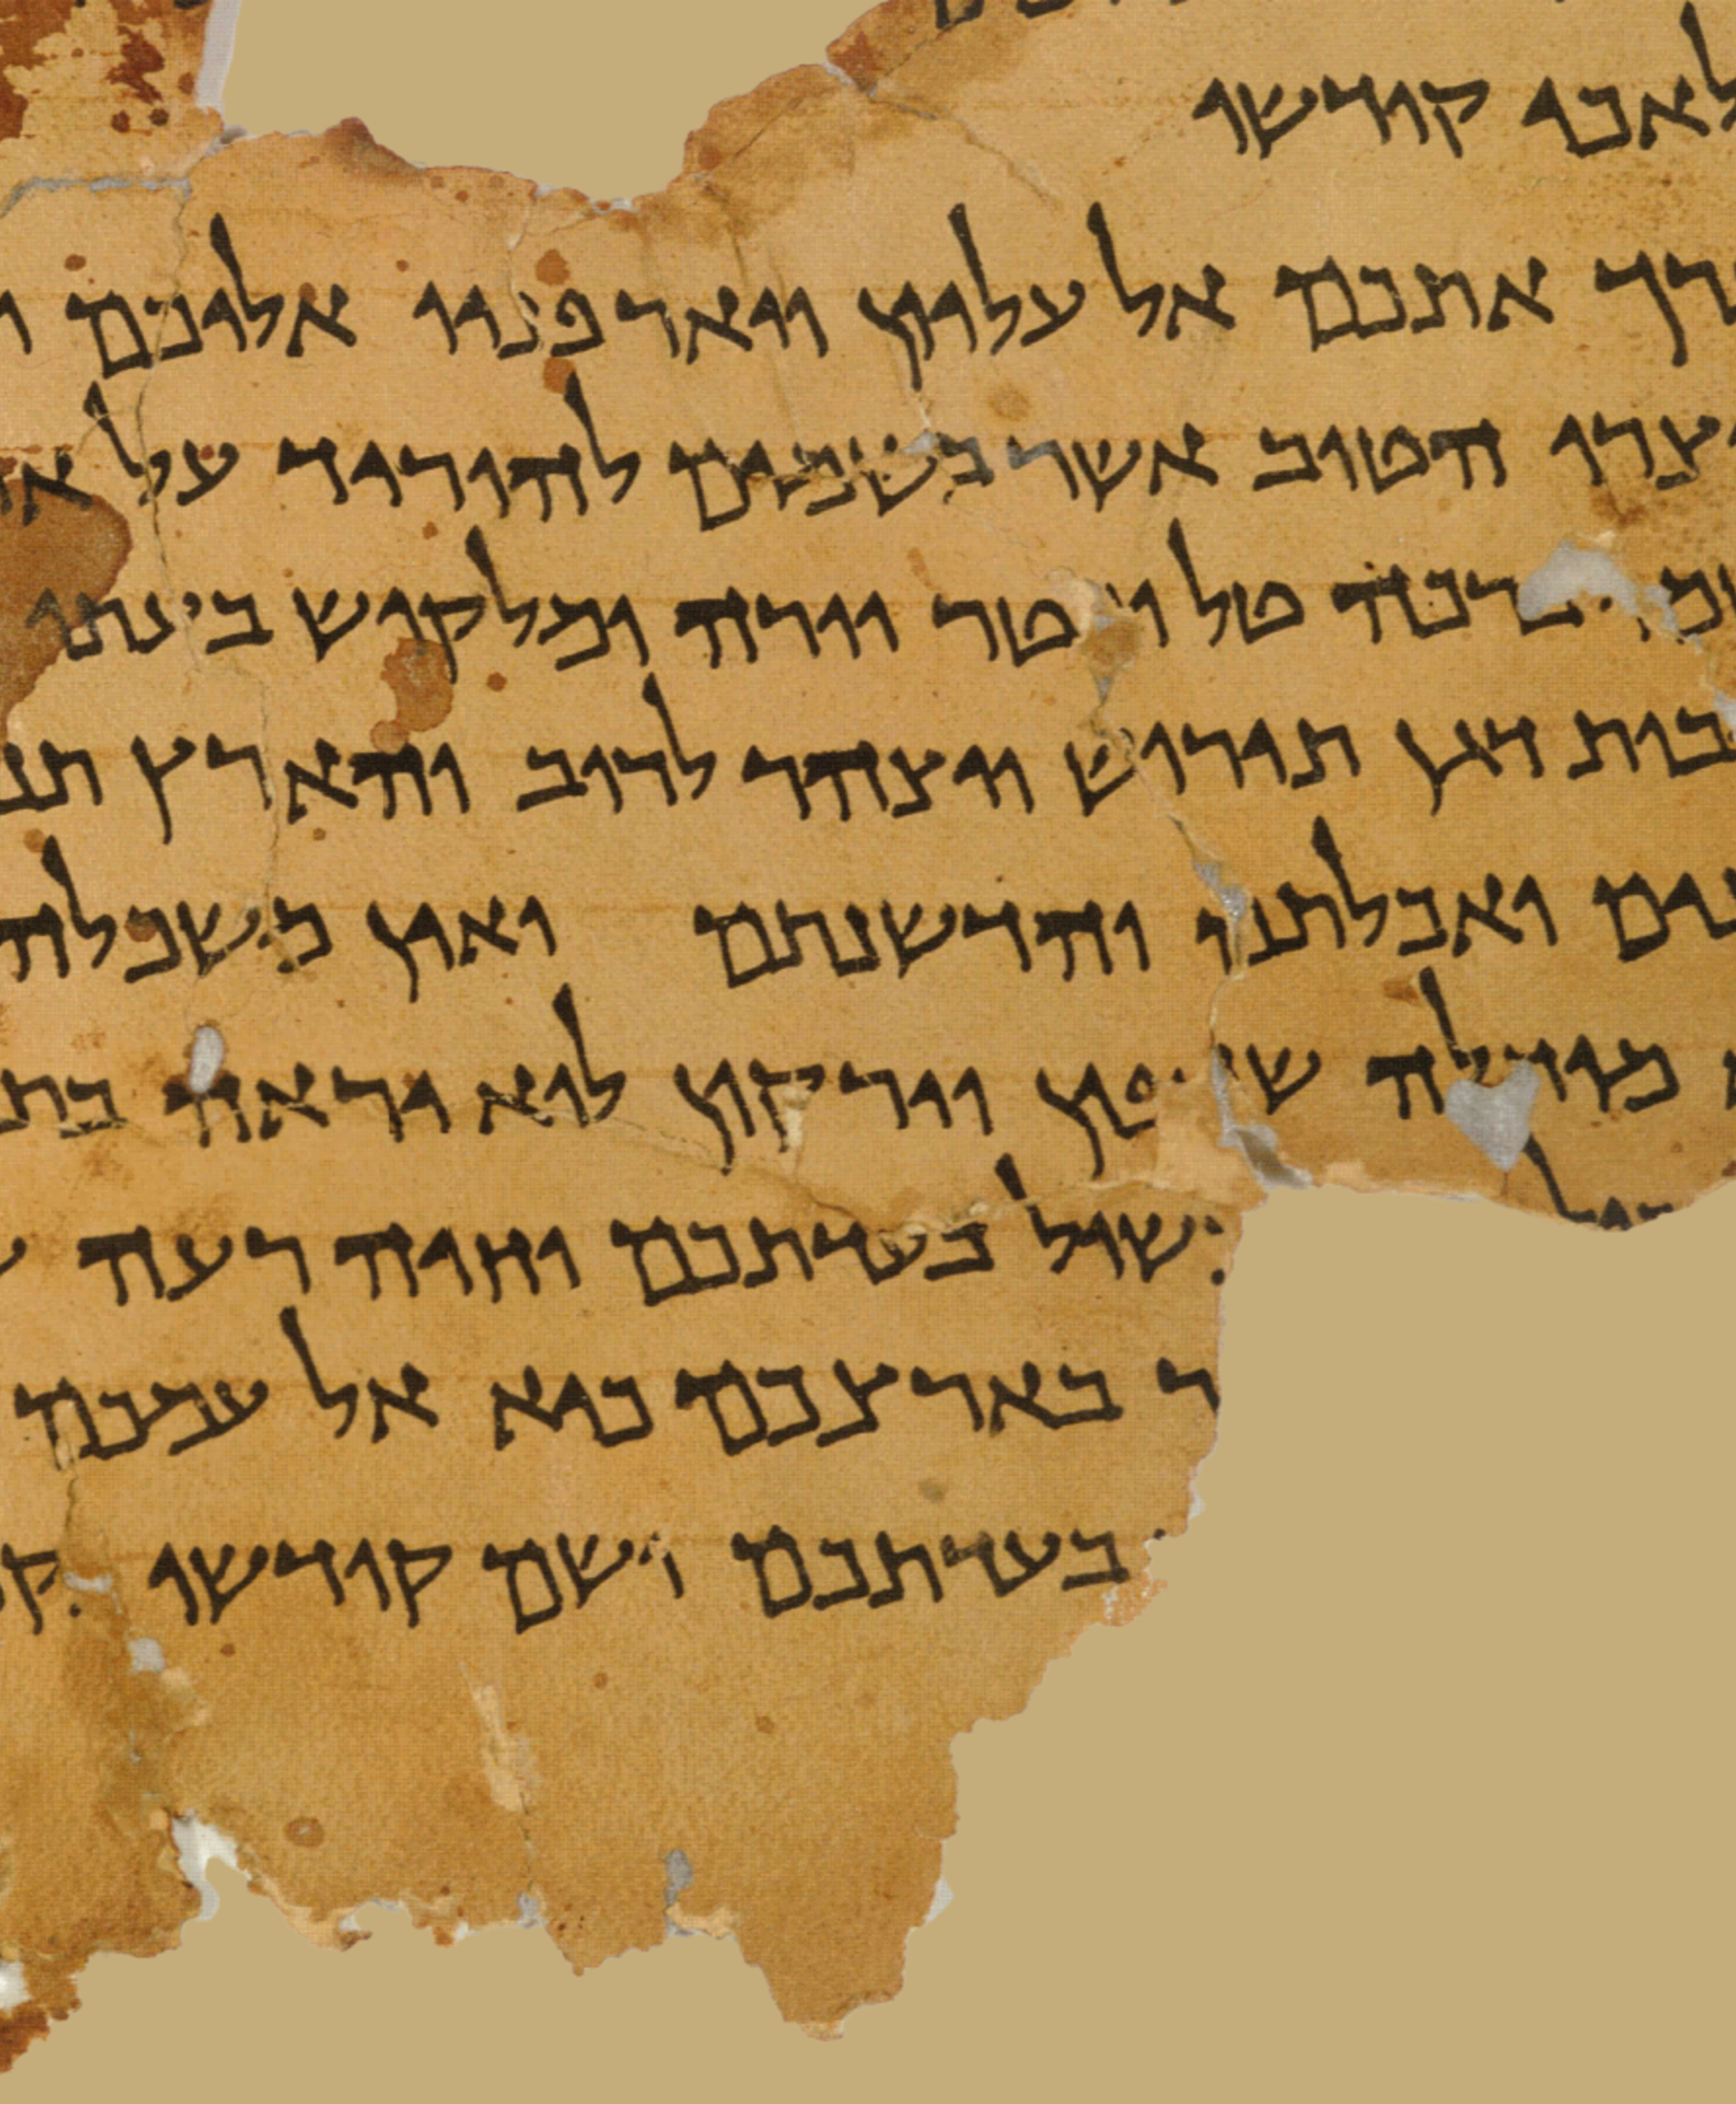 לאכי קודשו
רך אתכם אל עליון ויאר פניו אליכם
וצרו הטוב אשר בשמים להוריד על
ברכה טל ומטר יורה ומלקוש בעתו
בות דגן תירוש ויצהר לרוב והארץ תנ
נים ואכלתם והדשנתם ואין משכלה
מוחלה שדפון וירקון לוא יראה בת
שול בעדתכם וחיה רעה
ר בארצכם כיא אל עמכם
בעדתכם ושם קודשו